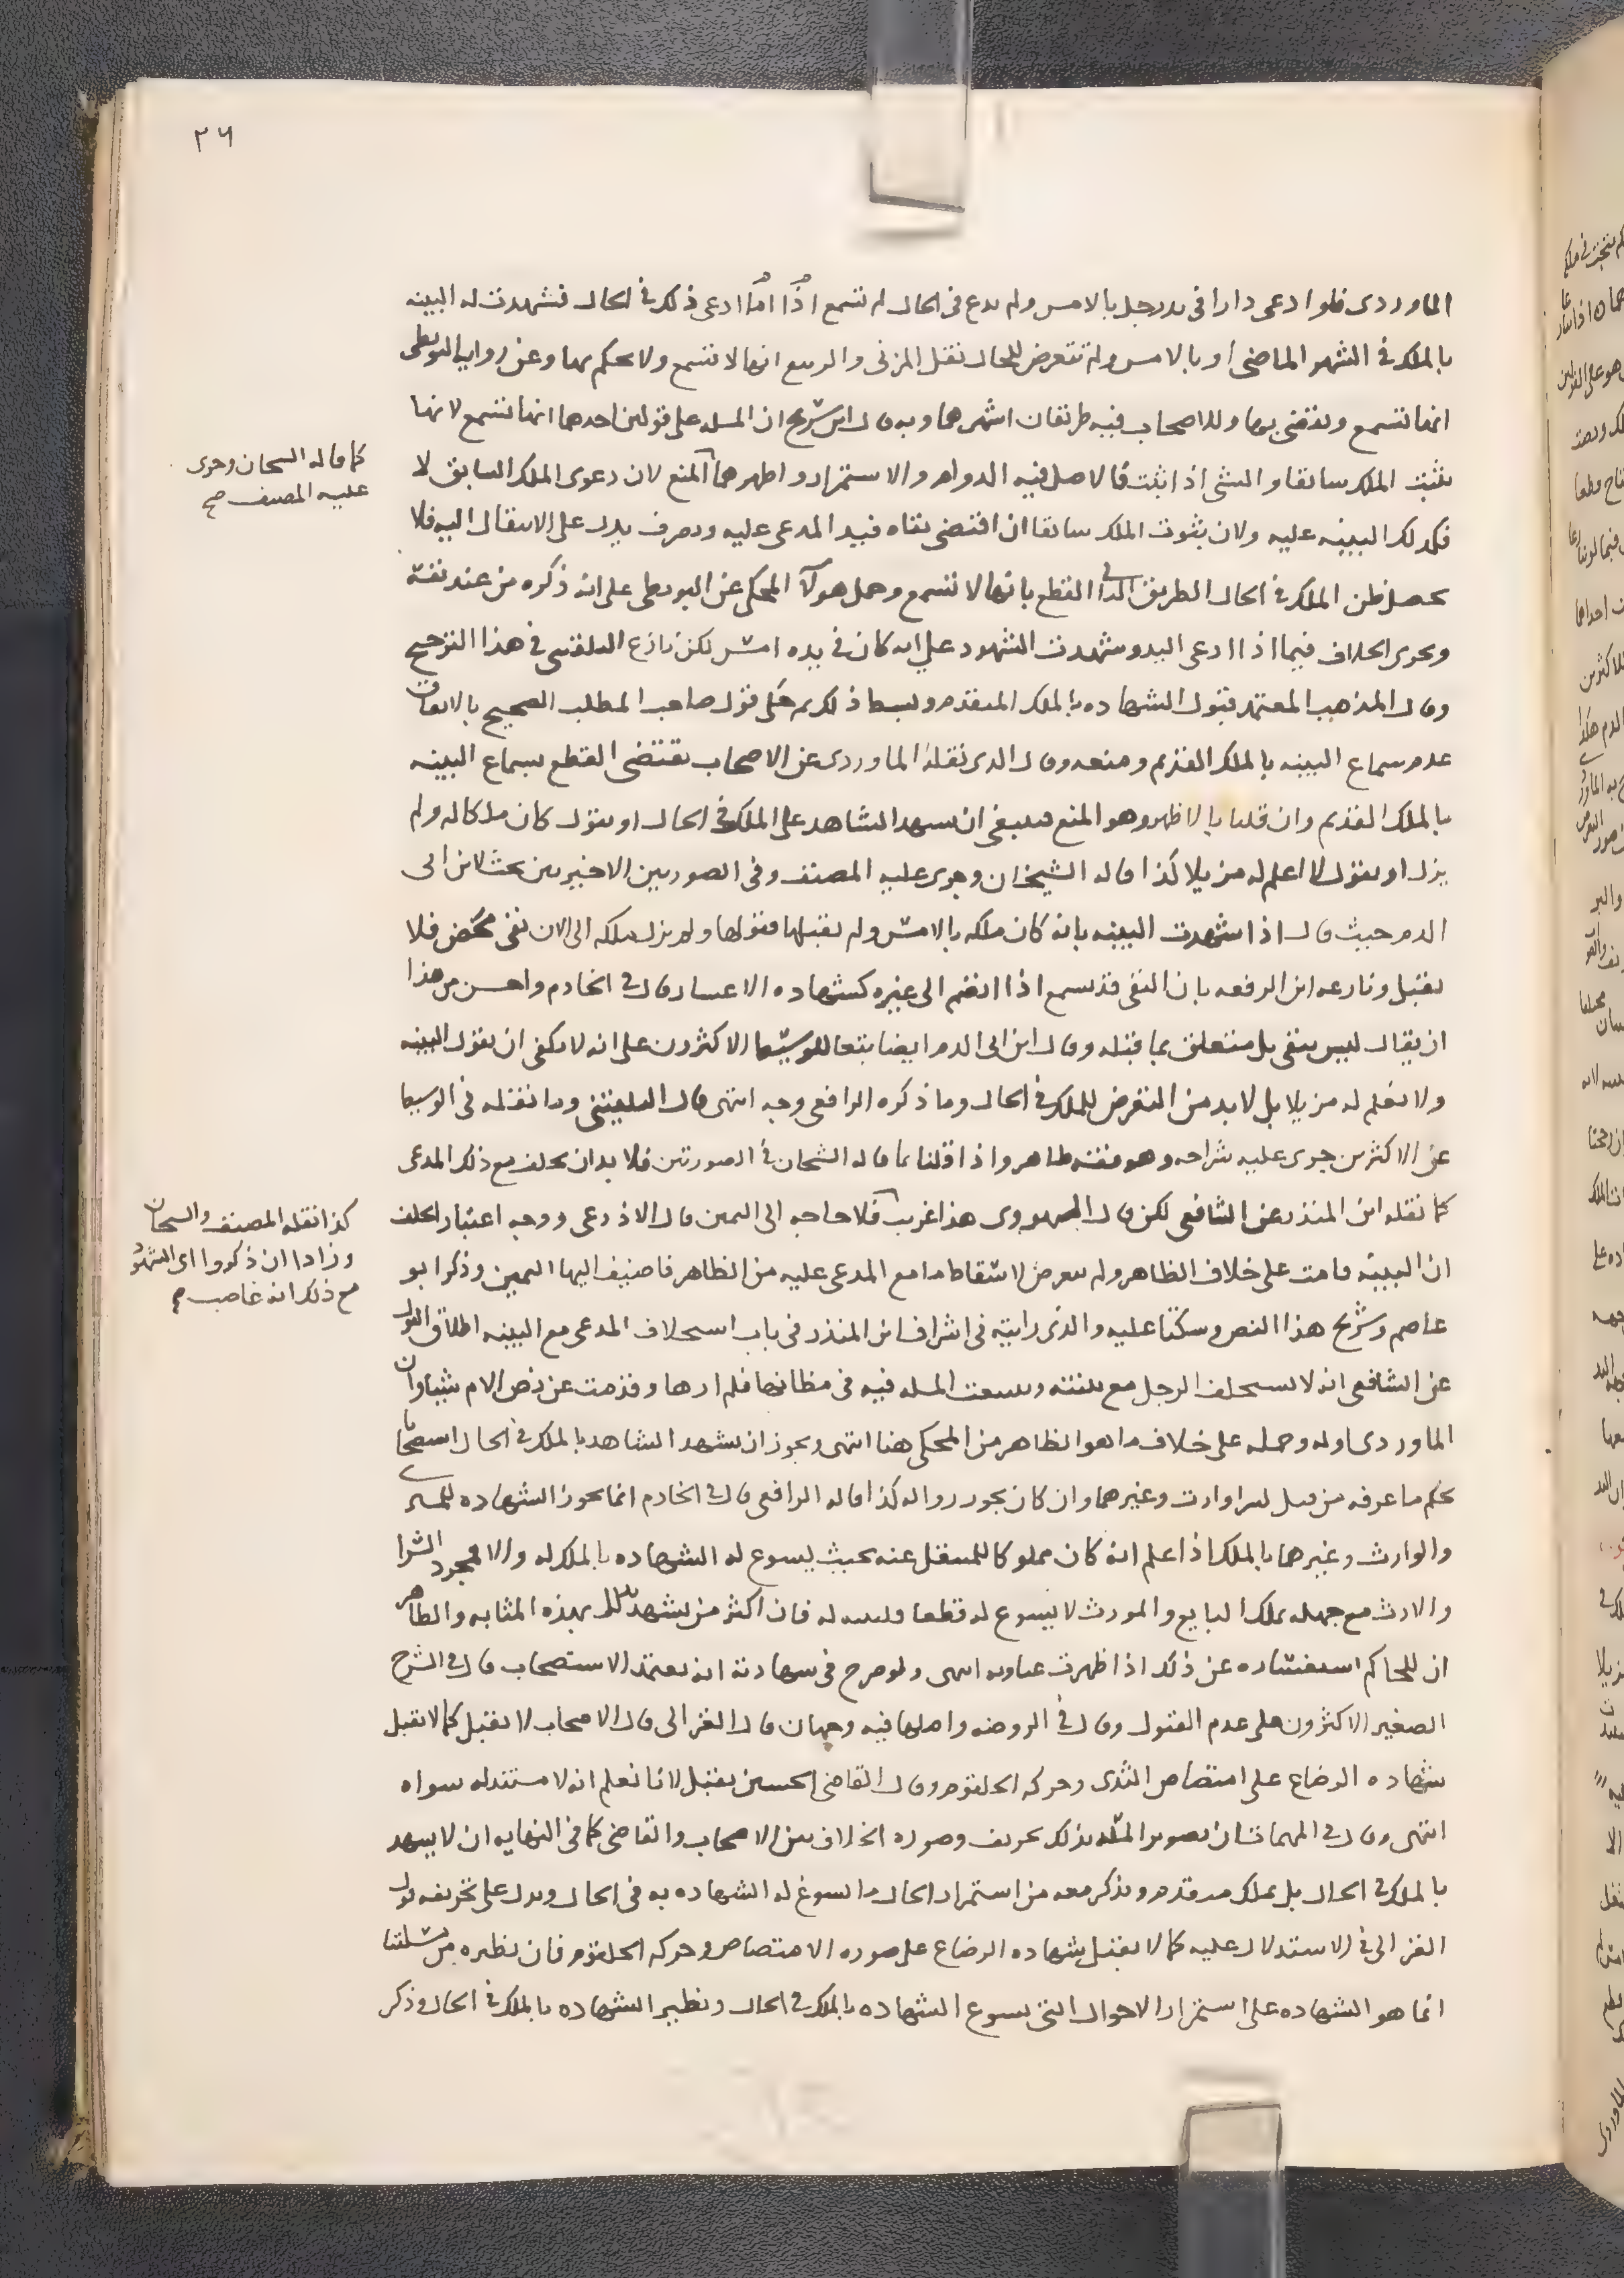 ٢٦
الماوردى فلو ادعى دارا فى يد رجل بالامس ولم يدع فى الحال لم تسمع اذا اما ادعى ذلك فى الحال فشهدت له البينه
بالملك فى الشهر الماضى او بالامس ولم تتعرض للحال نقل المزنى والربيع انها لا تسمع ولا يحكم بها وعن رواية البويطى
انها تسمع ويقضى بها وللاصحاب فيه طريقان اشهرهما وبه قال ابن سريج ان المسله على قولين احدهما انها تسمع لانها
تثبت الملك سابقا والشى اذا ثبت فالاصل فيه الدوام والاستمرار واظهرهما المنع لان دعوى الملك السابق لا
فكذلك البينه عليه ولان ثبوت الملك سابقا ان اقتضى بقاه فيد المدعى عليه وتصرفه يدل على الانتقال اليه فلا
يحصل ظن الملك فى الحال الطريق الثانى القطع بانها لا تسمع وحمل هولا المحكى عن البويطى على انه ذكره من عند نفسه
ويجرى الخلاف فيما اذا ادعى اليد وشهدت الشهود على انه كان فى يده امس لكن نازع البلقينى فى هذا الترجيح
وقال المذهب المعتمد قبول الشهاده بالملك المتقدم وبسط ذلك ثم حكى قول صاحب المطلب الصحيح بالاتفاق
عدم سماع البينه بالملك القديم ومنعه وقال الذى نقله الماوردى عن الاصحاب يقتضى القطع بسماع البينه
بالملك القديم وان قلنا بالاظهر وهو المنع فينبغى ان يشهد الشاهد على الملك فى الحال او يقول كان ملكا له ولم
يزل او يقول لا اعلم له مزيلا كذا قاله الشيخان وجرى عليه المصنف وفى الصورتين الاخيرتين بحث لابن ابى
الدم حيث قال اذا شهدت البينه بانه كان ملكه بالامس ولم نقبلها فقولها ولم يزل ملكه الى الان نفى محض فلا
يقبل ونازعه ابن الرفعه بان النفى قد يسمع اذا انضم الى غيره كشهاده الاعسار قال فى الخادم واحسن من هذا
ان يقال ليس بنفى بل متعلق بما قبله وقال ابن ابى الدم ايضا تبعا للوسيط الاكثرون على انه لا يكفى ان يقول البينه
ولا نعلم له مزيلا بل لا بد من التعرض للملك فى الحال وما ذكره الرافعى وجه انتهى قال البلقينى وما نقله فى الوسيط
عن الاكثرين جرى عليه شراحه وهو فقه ظاهر واذا قلنا بما قاله الشيخان فى الصورتين فلا بد ان يحلف مع ذلك المدعى
كما نقله ابن المنذر عن الشافعى لكن قال الهروى هذا غريب فلا حاجه الى اليمين قال الاذرعى ووجه اعتبار الحلف
ان البينة قامت على خلاف الظاهر ولم تتعرض لاسقاط ما مع المدعى عليه من الظاهر فاضيف اليها اليمين وذكر ابو
عاصم وشريح هذا النص وسكتا عليه والذى رايته فى اشراف ابن المنذر فى باب استحلاف المدعى مع البينه اطلاق القول
عن الشافعى انه لا يستحلف الرجل مع بينته وتتبعت المسله فيه فى مظانها فلم ارها وقدمت عن نص الام شيئا وان
الماوردى اوله وحمله على خلاف ما هو الظاهر من المحكى هنا انتهى ويجوز ان يشهد الشاهد بالملك فى الحال استصحابا
بحكم ما عرفه من قبل كشرا وارث وغيرهما وان كان يجوز زواله كذا قاله الرافعى قال فى الخادم انما يجوز الشهاده للمشترى
والوارث وغيرهما بالملك اذا علم انه كان مملوكا للمنتقل عنه بحيث يسوغ له الشهاده بالملك له والا فمجرد الشرا
والارث مع جهله بملك البايع والمورث لا يسوغ له قطعا وليتنبه له فان اكثر من يشهد بالملك بهذه المثابه والظاهر
ان للحاكم استفساره عن ذلك اذا ظهرت غباوته انتهى ولو صرح فى شهادته انه يعتمد الاستصحاب قال فى الشرح
الصغير الاكثرون على عدم القبول وقال فى الروضه واصلها فيه وجهان قال الغزالى قال الاصحاب لا يقبل كما لا تقبل
شهاده الرضاع على امتصاص الثدى وحركه الحلقوم وقال القاضى الحسين يقبل لانا نعلم انه لا مستند له سواه
انتهى وقال فى المهمات ان تصوير المسله بذلك تحريف وصوره الخلاف بين الاصحاب والقاضى كما فى النهايه ان لا يشهد
بالملك فى الحال بل بملك متقدم ويذكر معه من استمرار الحال ما يسوغ له الشهاده به فى الحال ويدل على تحريفه قول
الغزالى فى الاستدلال عليه كما لا يقبل شهاده الرضاع على صوره الامتصاص وحركه الحلقوم فان نظيره من مسلتنا
انما هو الشهاده على استمرار الاحوال التى تسوغ الشهاده بالملك فى الحال ونظير الشهاده بالملك فى الحال وذكر
كما قاله الشيخان وجرى
عليه المصنف صح
كذا نقله المصنف والشيخان
وزادا ان ذكروا اى الشهود
مع ذلك انه غاصب صح